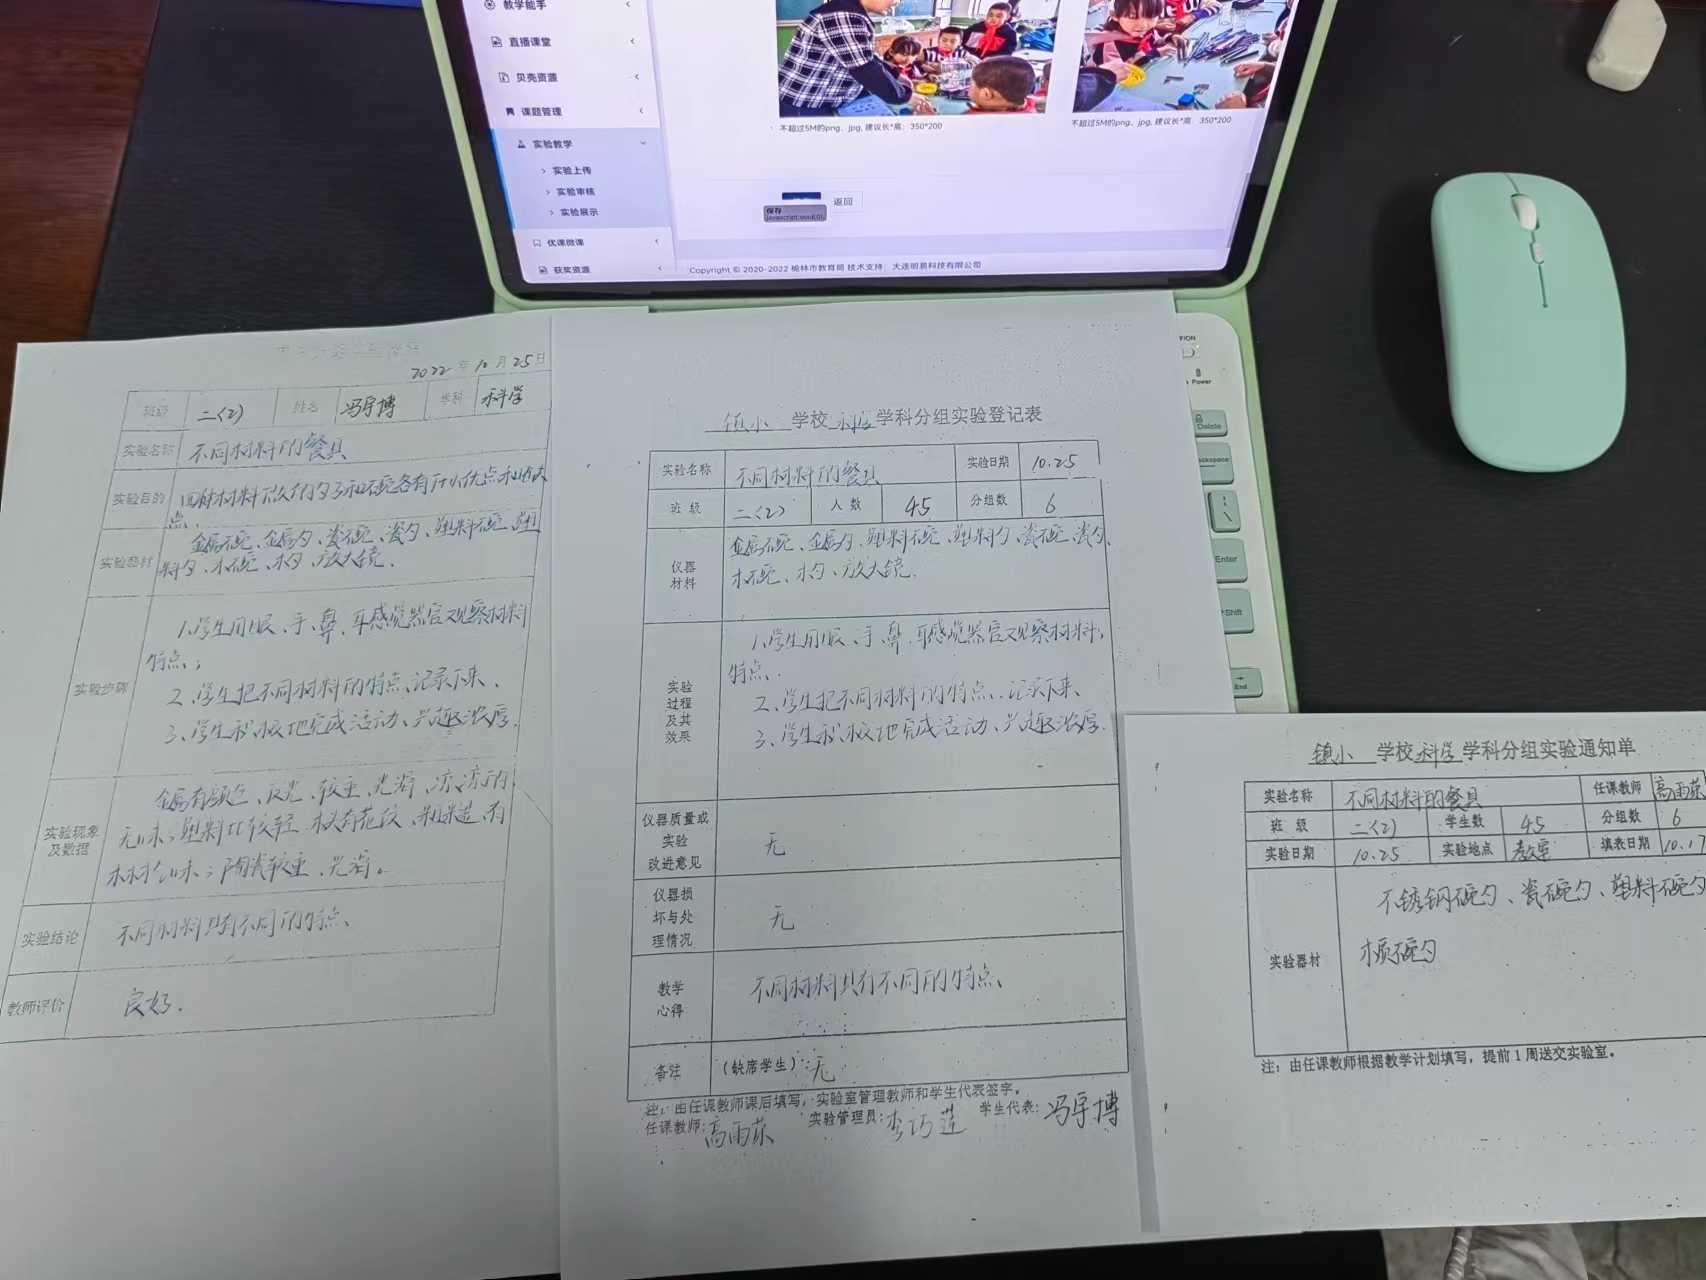 教学能手
直播课堂
贝壳资源
课题管理
实验教学
实验上传
实验审核
实验展示
优课微课
获奖资源
不超过5M的png、jpg, 建议长*高: 350*200
不超过5M的png、jpg, 建议长*高: 350*200
保存
javascript:void(0)
返回
Copyright © 2020-2022 榆林市教育局 技术支持: 大连明易科技有限公司
Power
Delete
ckspace
Enter
Shift
End
2022 年 10 月 25 日
班级 二(2) 姓名 冯宇博 学科 科学
实验名称 不同材料的餐具
实验目的 四种材料做的勺子和碗各有什么优点和缺
点.
实验器材 金属碗、金属勺、瓷碗、瓷勺、塑料碗、塑
料勺、木碗、木勺、放大镜.
实验步骤
1.学生用眼、手、鼻、耳感觉器官观察材料
特点;
2、学生把不同材料的特点、记录下来、
3、学生积极地完成活动、兴趣浓厚.
实验现象
及数据
金属有颜色、反光、较重、光滑、凉凉的、
无味;塑料比较轻 木头有花纹、粗糙、有
木材味;陶瓷较重、光滑。
实验结论 不同材料具有不同的特点、
教师评价 良好.
镇小 学校 科学 学科分组实验登记表
实验名称 不同材料的餐具 实验日期 10.25
班 级 二(2) 人 数 45 分组数 6
仪器
材料
金属碗、金属勺、塑料碗、塑料勺、瓷碗、瓷勺、
木碗、木勺、放大镜.
实验
过程
及其
效果
1.学生用眼、手、鼻、耳感觉器官观察材料,
特点、
2、学生把不同材料的特点、记录下来、
3、学生积极地完成活动、兴趣浓厚.
仪器质量或
实验
改进意见
无
仪器损
坏与处
理情况
无
教学
心得
不同材料具有不同的特点、
备注 (缺席学生):无
注: 由任课教师课后填写, 实验室管理教师和学生代表签字。
任课教师: 高雨荪 实验管理员: 李巧莲 学生代表: 冯宇博
镇小 学校 科学 学科分组实验通知单
实验名称 不同材料的餐具 任课教师 高雨荪
班 级 二(2) 学生数 45 分组数 6
实验日期 10.25 实验地点 教室 填表日期 10.17
实验器材
不锈钢碗勺、瓷碗勺、塑料碗勺
木质碗勺
注: 由任课教师根据教学计划填写, 提前1周送交实验室。